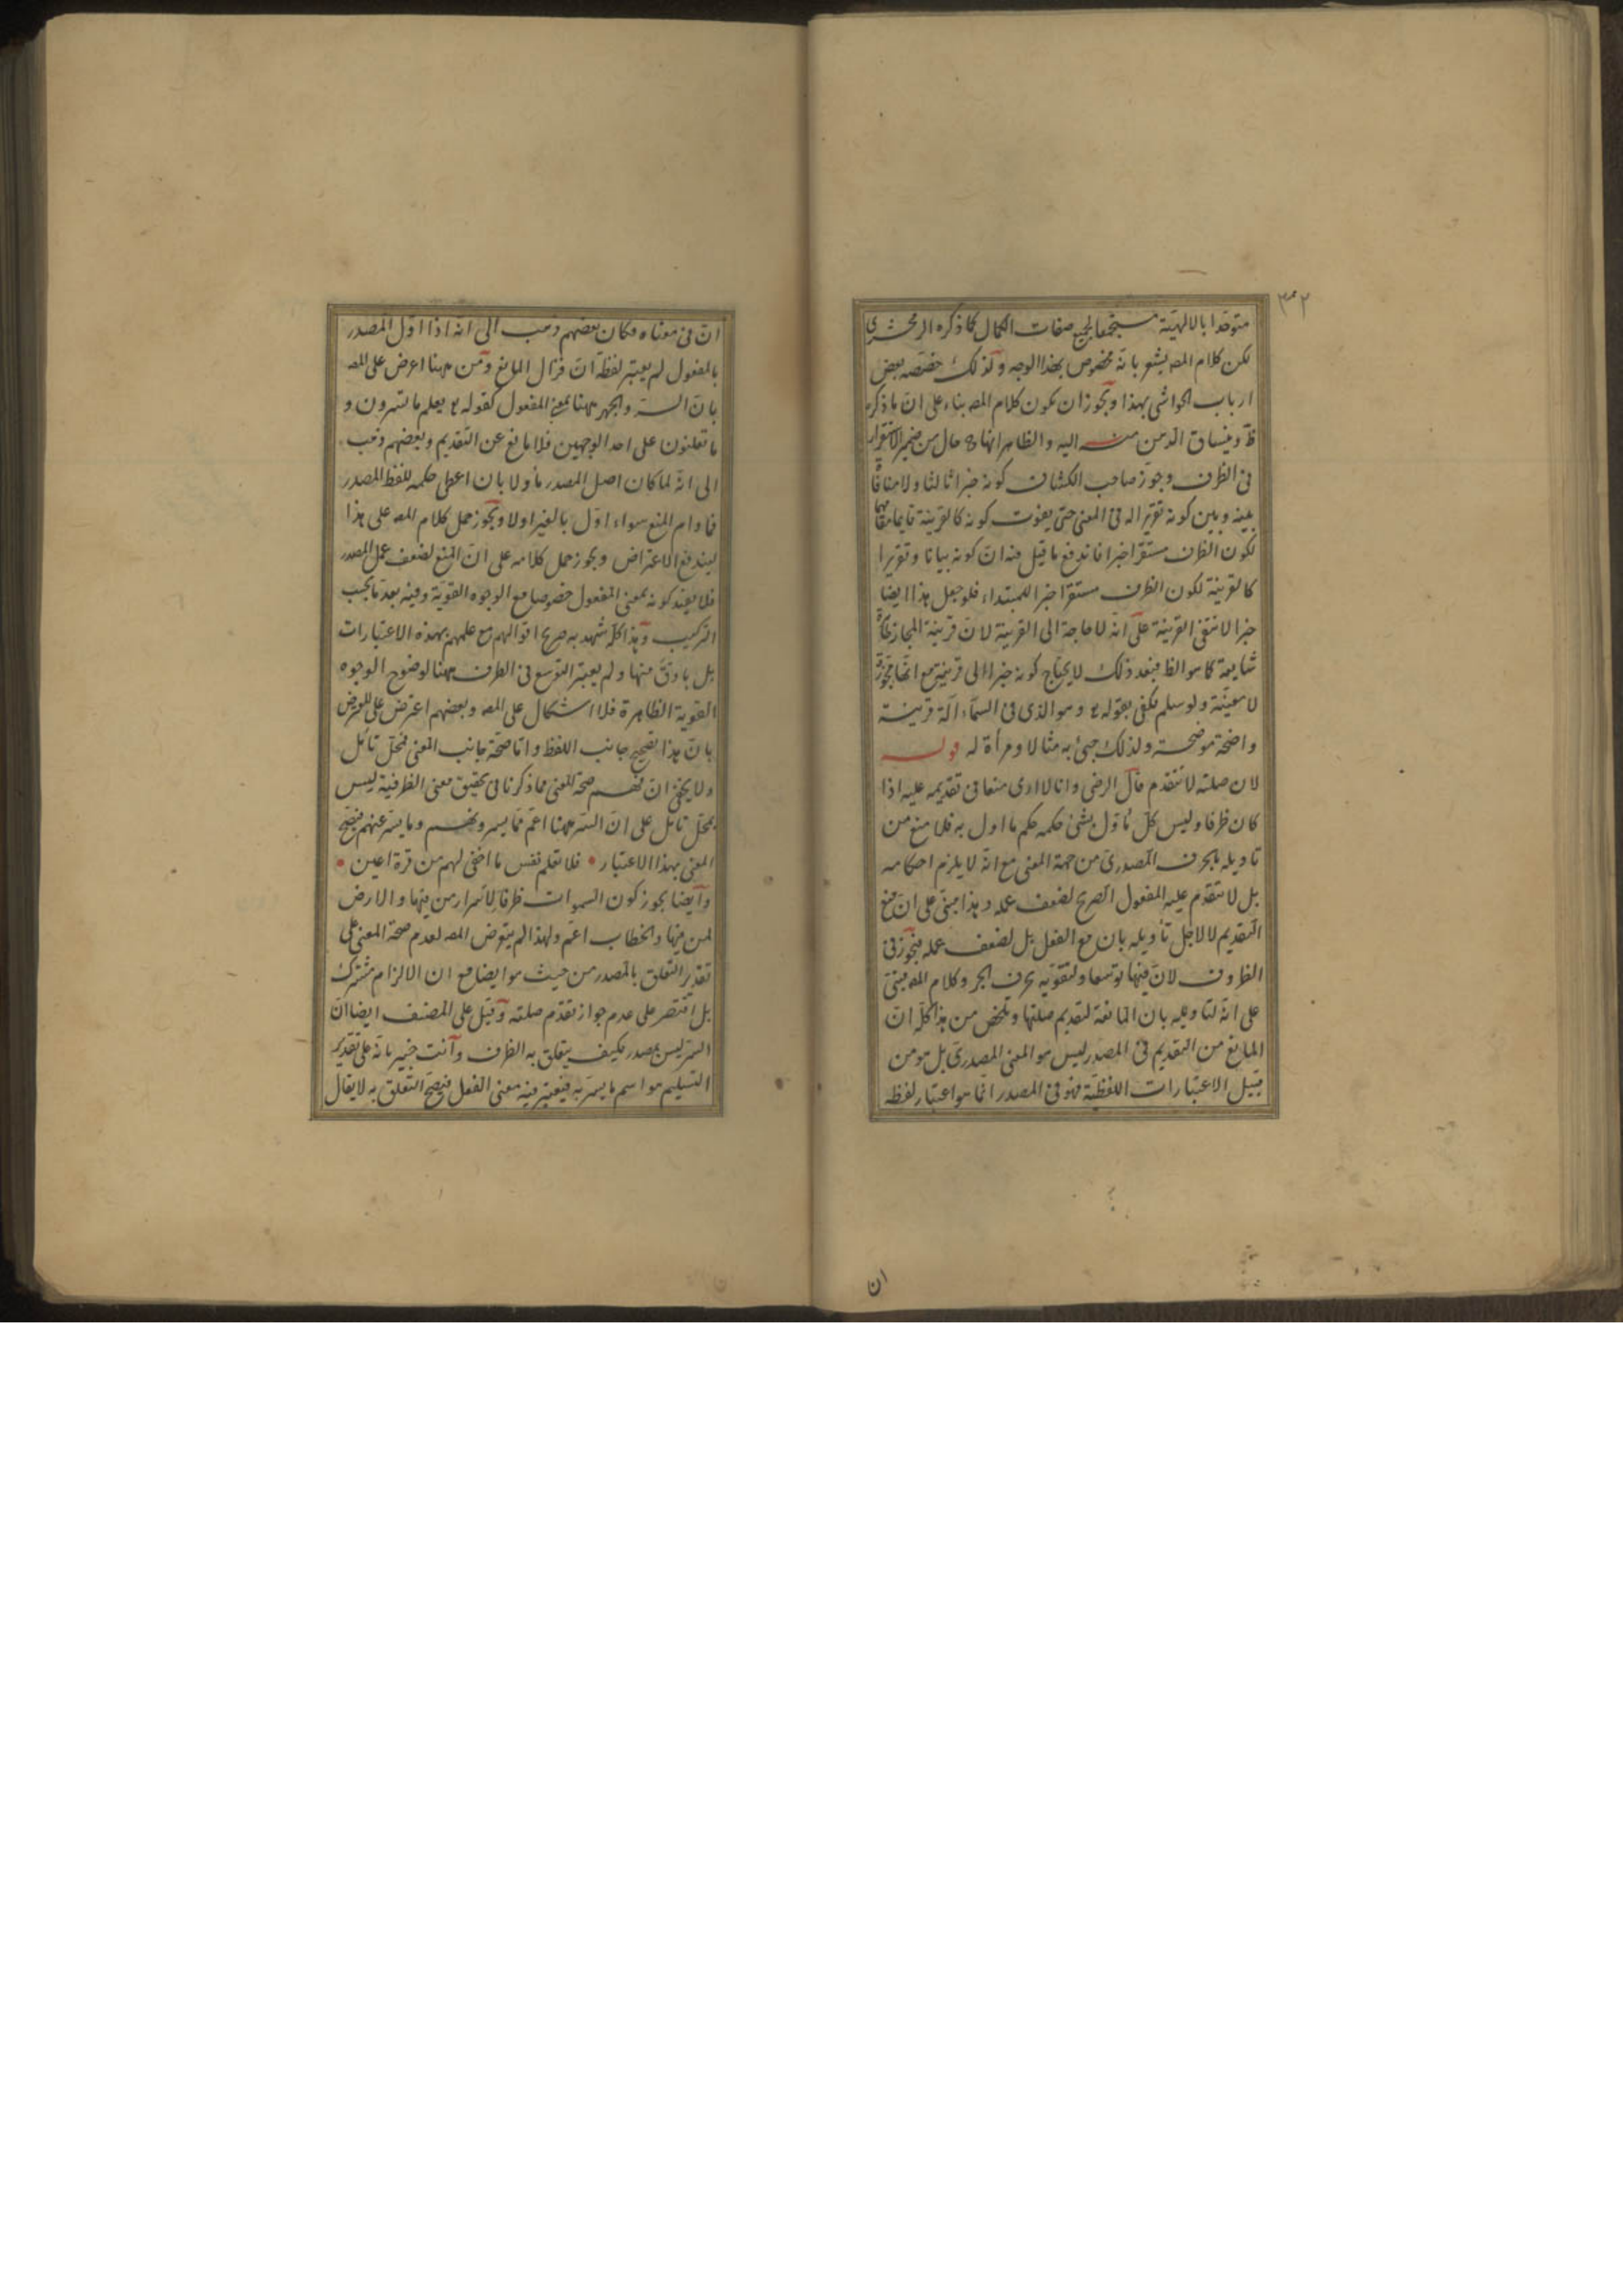 ٣٢
متوحدا بالالهية مستجمعا لجميع صفات الكمال كما ذكره الزمخشرى
لكن كلام المص يشعر بانه مخصوص بهذا الوجه ولذلك خصصه بعض
ارباب الحواشى بهذا ويجوز ان يكون كلام المص بناء على ان ما ذكره
ظ وينساق الذهن منه اليه والظاهر انها ح حال من ضمير الاستقرار
فى الظرف وجوز صاحب الكشاف كونه خبرا ثالثا ولا منافاة
بينه وبين كونه تقريرا له فى المعنى حتى يفوت كونه كالقرينة
لكون الظرف مستقرا خبرا فاندفع ما قيل فيه ان كونه بيانا وتقريرا
كالقرينة لكون الظرف مستقرا خبرا للمبتداء فلو جعل هذا ايضا
خبرا لانتفى القرينة على انه لا حاجة الى القرينة لان قرينة المجاز
شايعة كما هو الظ فبعد ذلك لا يحتاج كونه خبرا الى قرينة مع انها مجوزة
لا معينة ولو سلم يكفى بقوله تع وهو الذى فى السماء اله قرينة
واضحة موضحة ولذلك جئ به مثالا ومرأة له قوله
لان صلته لا تتقدم قال الرضى وانا لا ارى منعا فى تقديمه عليه اذا
كان ظرفا وليس كل مأول بشئ حكمه حكم ما اول به فلا منع من
تاويله بالحرف المصدرى من جهة المعنى مع انه لا يلزم احكامه
بل لا يتقدم عليه المفعول الصريح لضعف عمله وهذا مبنى على ان منع
التقديم لا لاجل تأويله بان مع الفعل بل لضعف عمله فيجوز فى
الظروف لان فيها توسعا ولتقويه بحرف الجر وكلام المص مبنى
على انه لتاويله بان المانعة لتقديم صلتها وتلخص من هذا كله ان
المانع من التقديم فى المصدر ليس هو المعنى المصدرى بل هو من
قبيل الاعتبارات اللفظية فهو فى المصدر انما هو اعتبار لفظه
ان
ان فى معناه فكان بعضهم ذهب الى انه اذا اول المصدر
بالمفعول لم يعتبر لفظة ان فزال المانع ومن ههنا اعرض على المص
بان السر والجهر ههنا بمعنى المفعول كقوله تع يعلم ما تسرون و
ما تعلنون على احد الوجهين فلا مانع عن التقديم وبعضهم ذهب
الى انه لما كان اصل المصدر مأولا بان اعطى حكمه للفظ المصدر
فما دام المنع سواء اول بالغير اولا ويجوز حمل كلام المص على هذا
ليندفع الاعتراض ويجوز حمل كلامه على ان المنع لضعف عمل المصدر
فلا يفيد كونه بمعنى المفعول خصوصا مع الوجوه القوية وفيه بعد ما بحسب
التركيب وهذا كله شهد به صريح اقوالهم مع علمهم بهذه الاعتبارات
بل بادق منها ولم يعتبر التوسع فى الظرف ههنا لوضوح الوجوه
القوية الظاهرة فلا اشكال على المص وبعضهم اعترض على
بان هذا تصحيح جانب اللفظ واما صحة جانب المعنى فمحل تأمل
ولا يخفى ان فهم صحة المعنى مما ذكرنا فى تحقيق معنى الظرفية ليس
بمحل تأمل على ان السر ههنا اعم مما يسرونهم وما يسر عنهم فيصح
المعنى بهذا الاعتبار فلا تعلم نفس ما اخفى لهم من قرة اعين
وايضا يجوز كون السموات ظرفا لاسرار من فيها والارض
لمن فيها والخطاب اعم ولهذا لم يتعرض المص لعدم صحة المعنى على
تقدير التعلق بالمصدر من حيث هو ايضا مع ان الالزام مشترك
بل اقتصر على عدم جواز تقدم صلته وقيل على المصنف ايضا ان
السر ليس بمصدر فكيف يتعلق به الظرف وانت خبير بانه على تقدير
التسليم هو اسم ما يسر به فيعتبر فيه معنى الفعل فيصح التعلق به لا يقال